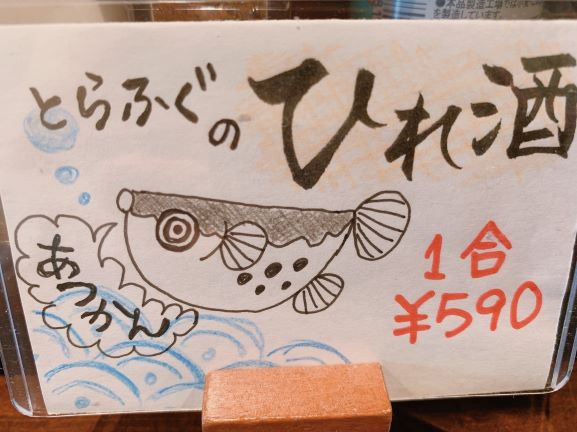 ●本品製造工場では
を製造しています。
とらふぐの
ひれ酒
あつかん
1合
¥590